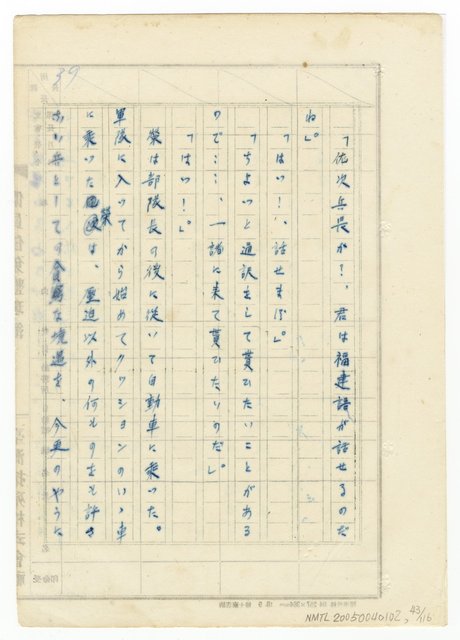 39
「佐次兵長か？、君は福建語が話せるのだ
ね」。
「はい！、話せます」。
「ちよいと通訳をして貰ひたいことがある
ので……、一諸に来て貰ひたいのだ」。
「はい！」。
榮は部隊長の後に従いて自動車に乗つた。
軍隊に入つてから始めてクッションのいゝ車
に乗つた榮は、圧迫以外の何ものをも許さ
ない兵としての な境遇を、今更のやうに
NMTL 20050040102, 43/116